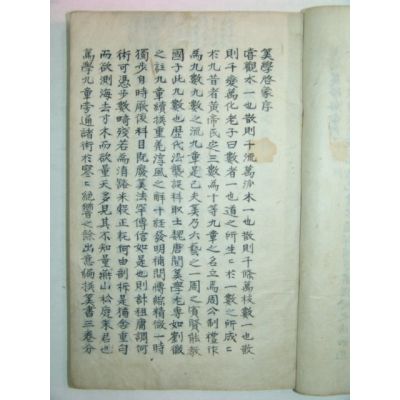 筭學啓蒙序
嘗觀水一也散則千流萬泒木一也散則千條萬枝數一也散
則千變萬化老子曰數者一也道之所生〻於一數之所成〻
於九昔者黃帝氏定三數為十等九章之名立焉周公制禮作
為九數九數之流九章是已夫筭乃六藝之一周之賓賢能教
國子此九數也歷代沿襲設科取士魏唐間筭學尤專如劉徽
之註九章續撰重差淳風之解十經發明補問博綜精微一時
獨步自時厥後科目旣廢筭法罕傳信如是也則計租庸調何
術可憑步數暗殘若為消豁米穀正耗何由剖析是猶舍重勾
而欲測海去寸木而欲量天多見其不知量燕山松庭朱君也
篤學九章旁通諸術於寥〻絕響之餘出意編撰筭書三卷分